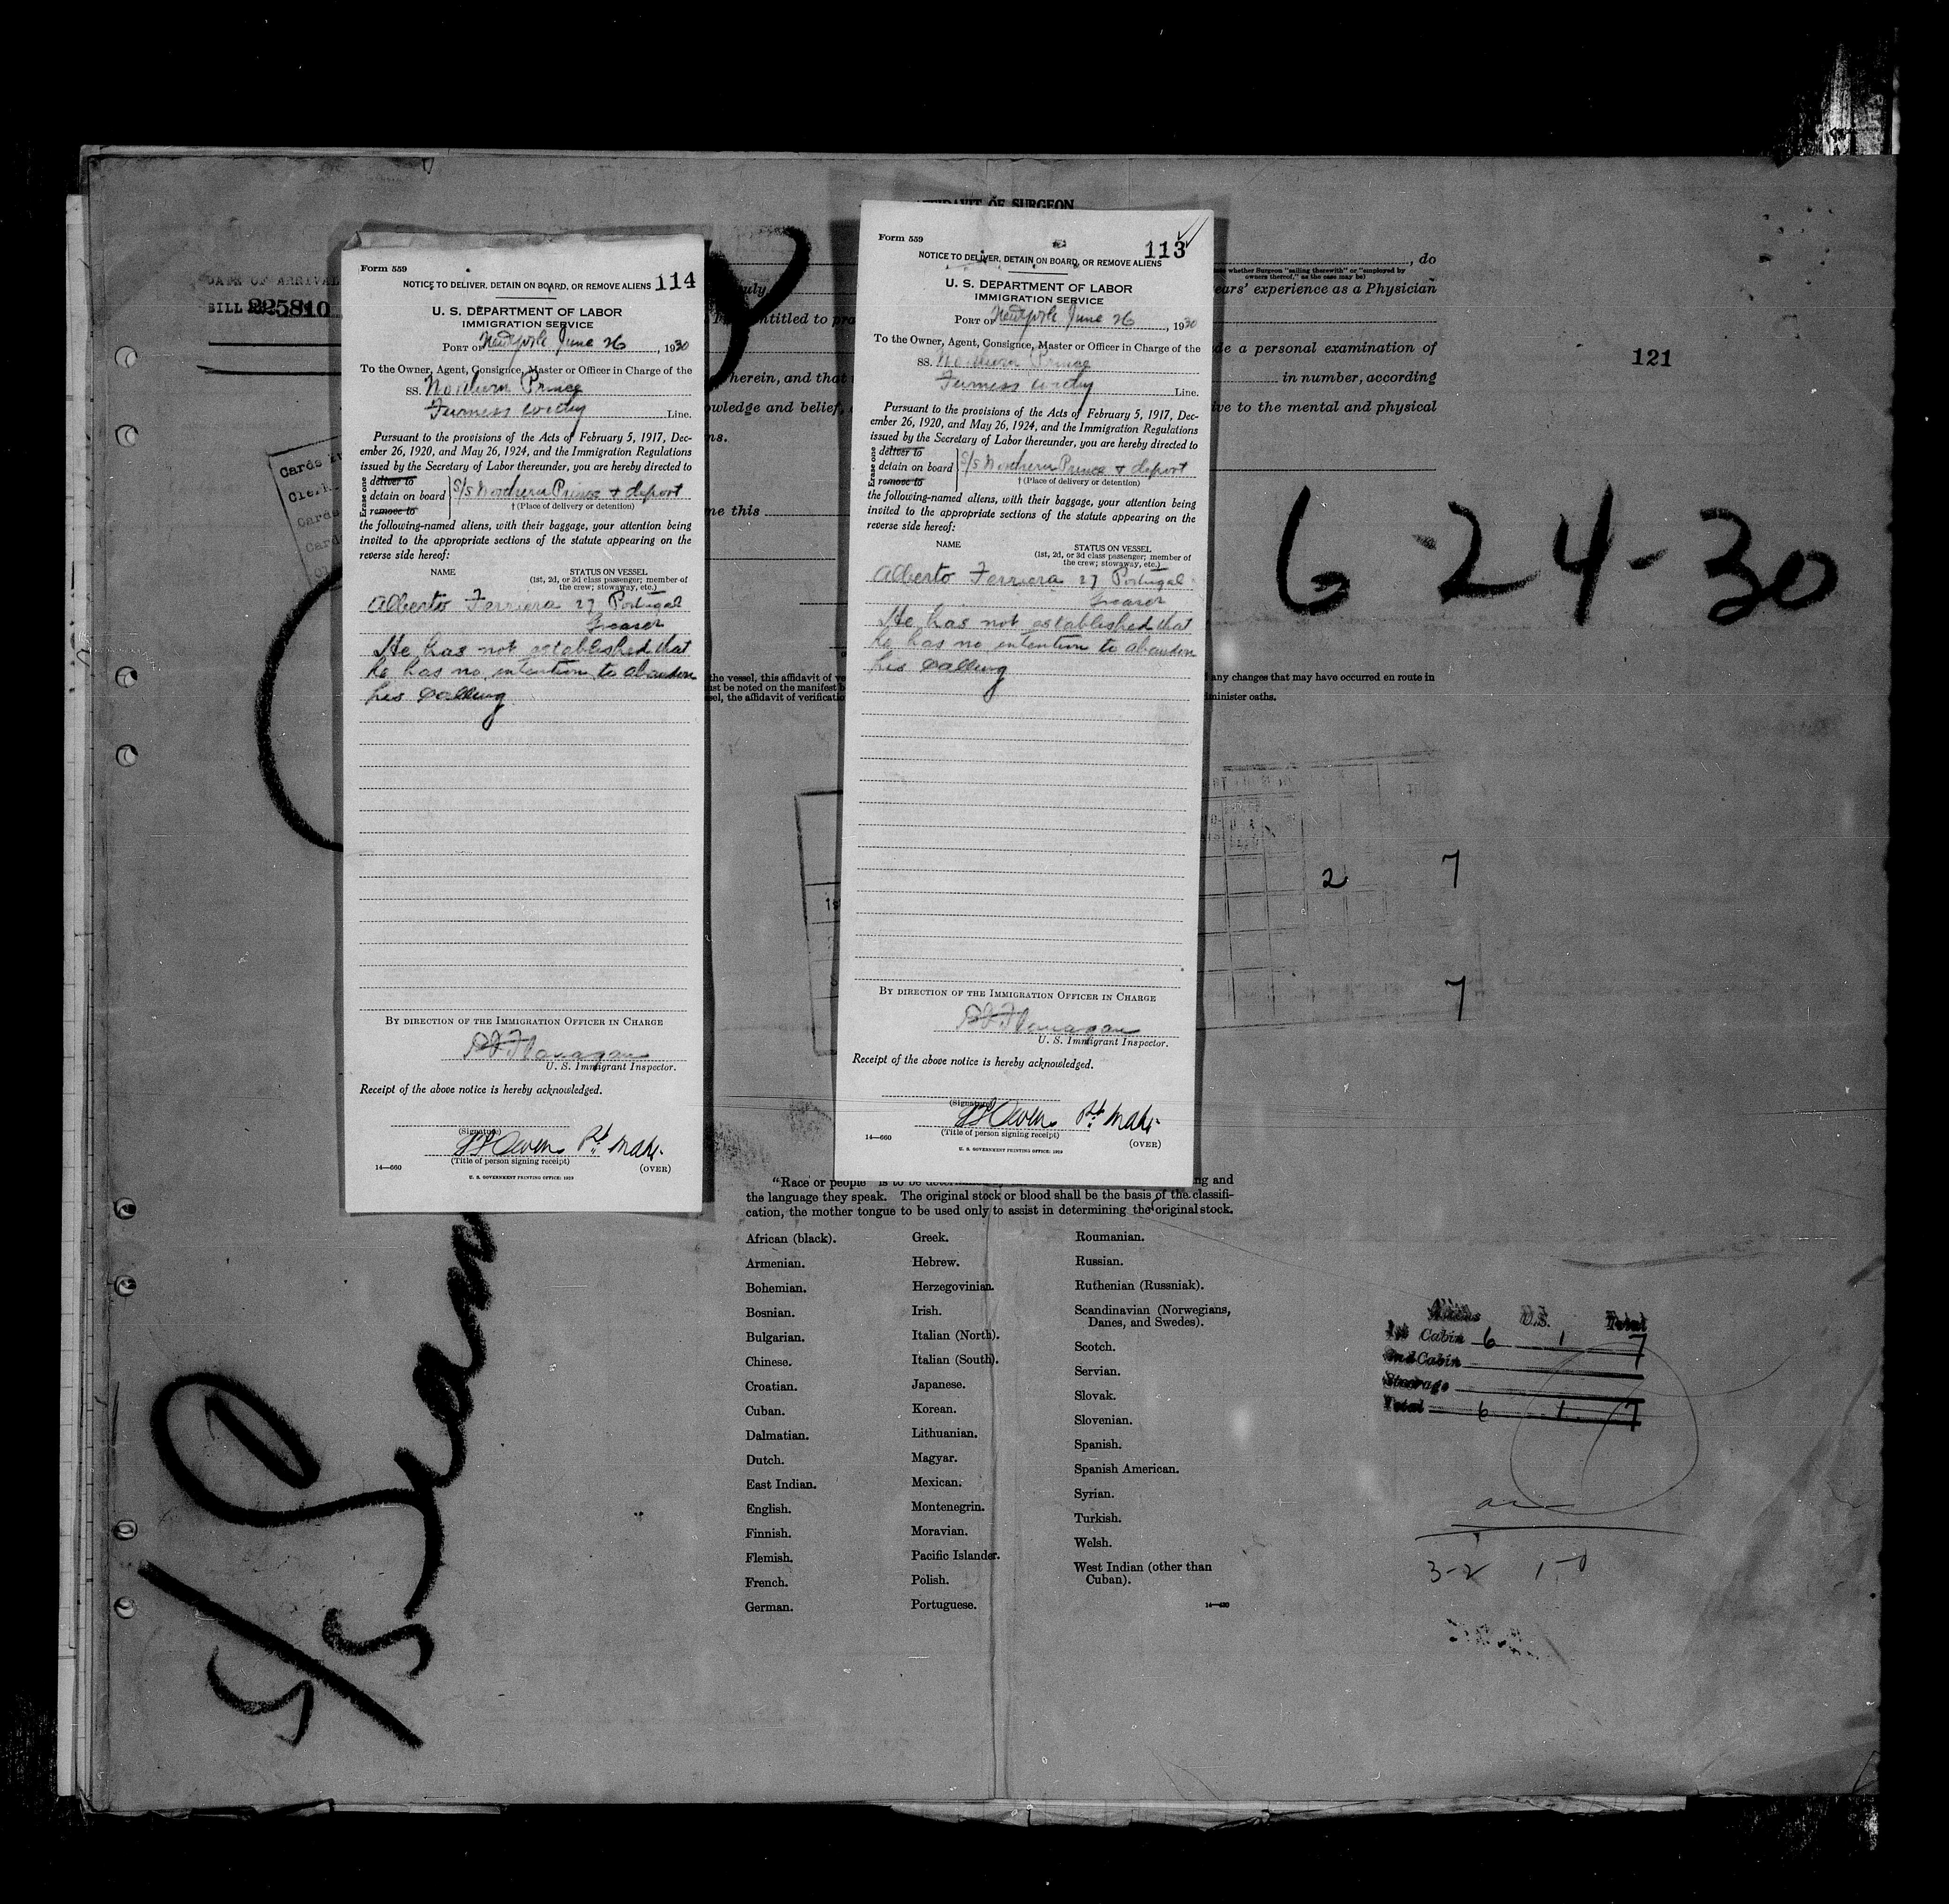 Form 559
114
NOTICE TO DELIVER, DETAIN ON BOARD, OR REMOVE ALIENS
U. S. DEPARTMENT OF LABOR
IMMIGRATION SERVICE
PORT OF New York June 26, 1930
To the Owner, Agent, Consignee, Master or Officer in Charge of the
SS. Northern Prince
Furness Withy Line.
Pursuant to the provisions of the Acts of February 5, 1917, Dec-
ember 26, 1920, and May 26, 1924, and the Immigration Regulations
issued by the Secretary of Labor thereunder, you are hereby directed to
Erase one
deliver to
detain on board S/s Northern Prince + deport
remove to
† (Place of delivery or detention)
the following-named aliens, with their baggage, your attention being
invited to the appropriate sections of the statute appearing on the
reverse side hereof:
NAME
STATUS ON VESSEL
(1st, 2d, or 3d class passenger; member of
the crew; stowaway, etc.)
Alberto Ferriera 27 Portugal
Greaser
He has not established that
he has no intention to abandon
his calling
BY DIRECTION OF THE IMMIGRATION OFFICER IN CHARGE
Flanagan
U. S. Immigrant Inspector.
Receipt of the above notice is hereby acknowledged.
(Signature)
Owens
(Title of person signing receipt)
14—660
(OVER)
U. S. GOVERNMENT PRINTING OFFICE: 1929
Form 559
113
NOTICE TO DELIVER, DETAIN ON BOARD, OR REMOVE ALIENS
U. S. DEPARTMENT OF LABOR
IMMIGRATION SERVICE
PORT OF New York June 26, 1930
To the Owner, Agent, Consignee, Master or Officer in Charge of the
SS. Northern Prince
Furness Withy Line.
Pursuant to the provisions of the Acts of February 5, 1917, Dec-
ember 26, 1920, and May 26, 1924, and the Immigration Regulations
issued by the Secretary of Labor thereunder, you are hereby directed to
Erase one
deliver to
detain on board S/s Northern Prince + deport
remove to
† (Place of delivery or detention)
the following-named aliens, with their baggage, your attention being
invited to the appropriate sections of the statute appearing on the
reverse side hereof:
NAME
STATUS ON VESSEL
(1st, 2d, or 3d class passenger; member of
the crew; stowaway, etc.)
Alberto Ferriera 27 Portugal
Greaser
He has not established that
he has no intention to abandon
his calling
BY DIRECTION OF THE IMMIGRATION OFFICER IN CHARGE
Flanagan
U. S. Immigrant Inspector.
Receipt of the above notice is hereby acknowledged.
(Signature)
Owens
(Title of person signing receipt)
14—660
(OVER)
U. S. GOVERNMENT PRINTING OFFICE: 1929
AFFIDAVIT OF SURGEON
DATE OF ARRIVAL
BILL
225810
, do
whether Surgeon "sailing therewith" or "employed by
owners thereof," as the case may be)
years' experience as a Physician
entitled to
a personal examination of
herein, and that
in number, according
knowledge and belief,
to the mental and physical
me this
121
6 24-30
the vessel, this affidavit of
any changes that may have occurred en route in
must be noted on the manifest
the affidavit of verification
administer oaths.
2 7
7
"Race or people" is to be
ng and
the language they speak. The original stock or blood shall be the basis of the classifi-
cation, the mother tongue to be used only to assist in determining the original stock.
African (black).
Armenian.
Bohemian.
Bosnian.
Bulgarian.
Chinese.
Croatian.
Cuban.
Dalmatian.
Dutch.
East Indian.
English.
Finnish.
Flemish.
French.
German.
Greek.
Hebrew.
Herzegovinian.
Irish.
Italian (North).
Italian (South).
Japanese.
Korean.
Lithuanian.
Magyar.
Mexican.
Montenegrin.
Moravian.
Pacific Islander.
Polish.
Portuguese.
Roumanian.
Russian.
Ruthenian (Russniak).
Scandinavian (Norwegians,
Danes, and Swedes).
Scotch.
Servian.
Slovak.
Slovenian.
Spanish.
Spanish American.
Syrian.
Turkish.
Welsh.
West Indian (other than
Cuban).
Aliens U.S. Total
1st Cabin 6 1 7
2nd Cabin
Steerage
Total 6 1 7